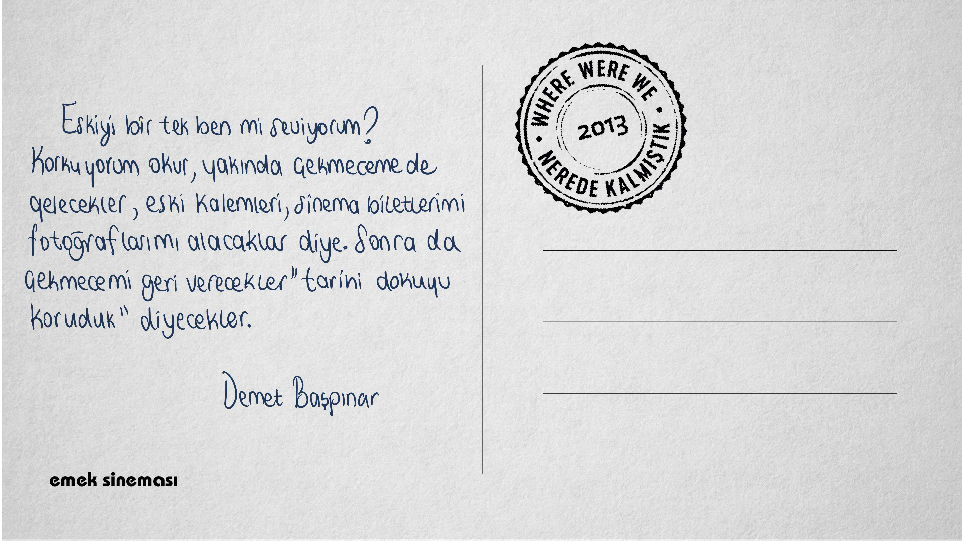 Eskiyi bir tek ben mi seviyorum?
Korkuyorum okur, yakında çekmeceme de
gelecekler, eski kalemleri, sinema biletlerimi
fotoğraflarımı alacaklar diye. Sonra da
çekmecemi geri verecekler "tarihi dokuyu
koruduk" diyecekler.
Demet Başpınar
emek sineması
WHERE WERE WE
2013
NEREDE KALMIŞTIK